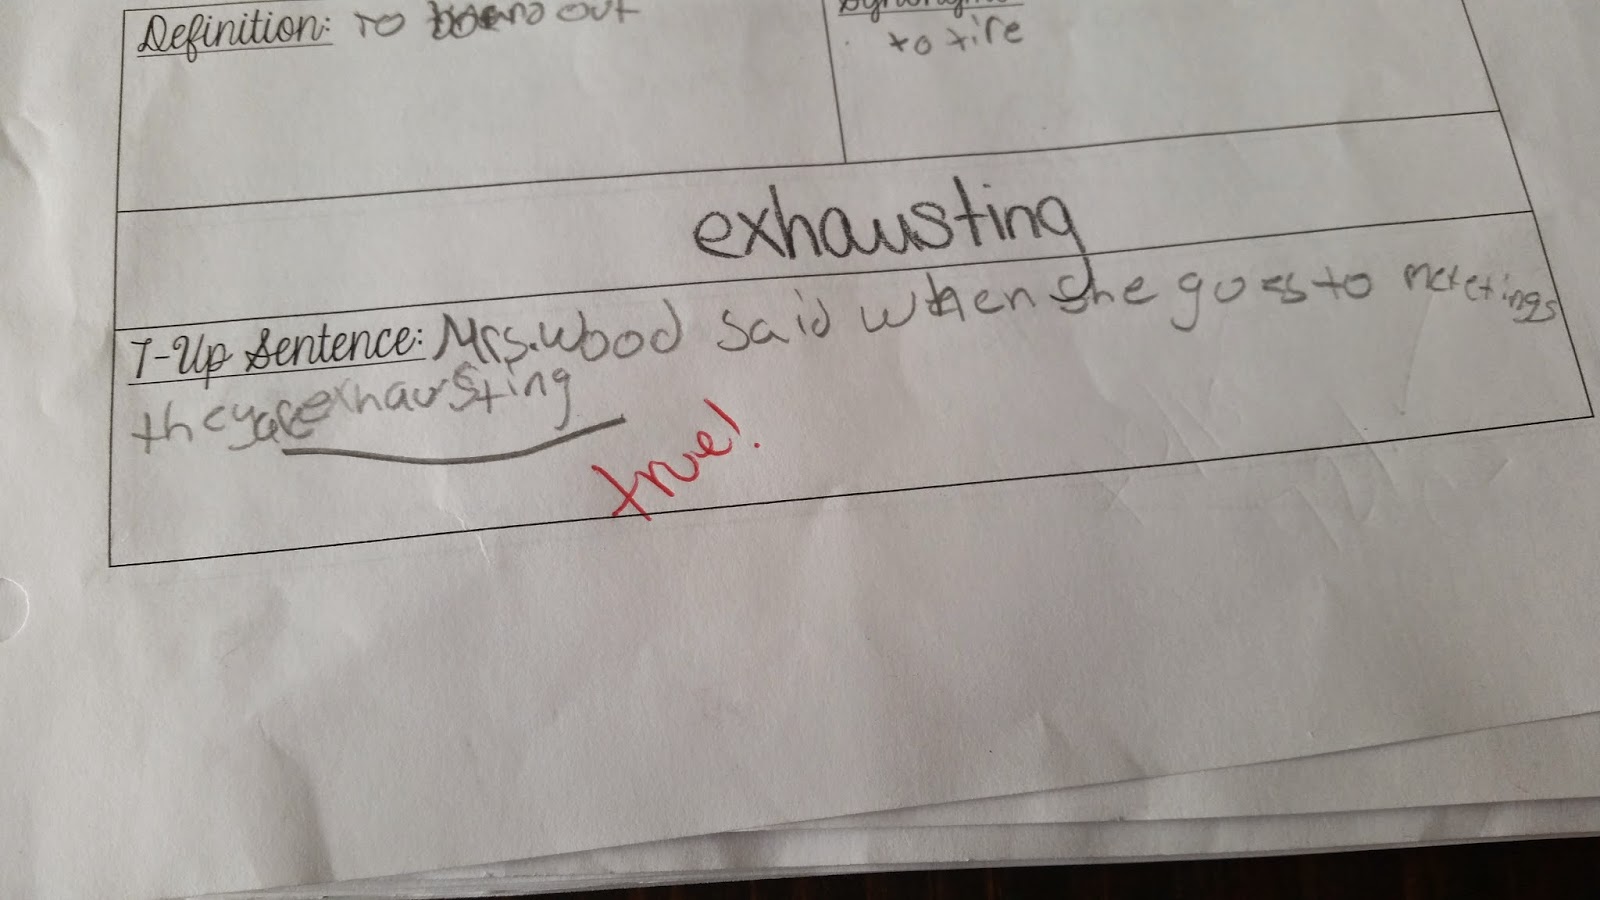 Definition: To out
Synonym
to tire
exhausting
7-Up Sentence: Mrs. Wood said when she goes to meetings
they are exhausting
true!